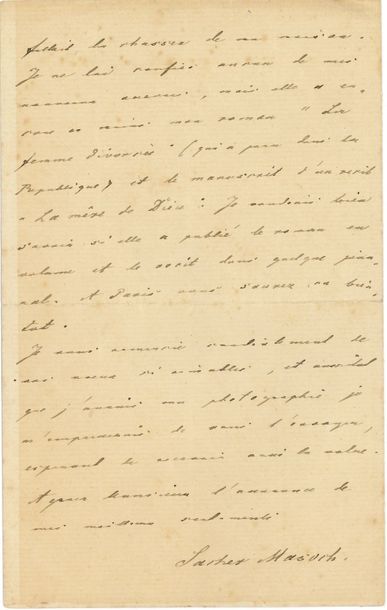 fallait la chasser de ma maison.
Je ne lui confie aucun de mes
nouveaux œuvres, mais elle a en-
core en mains mon roman "La
femme divorcée" (qui a paru dans la
République) et le manuscrit d'un récit
"La mère de Dieu". Je voudrais bien
savoir si elle a publié le roman en
volume et le récit dans quelque jour-
nal. A Paris vous saurez ca bien-
tôt.
Je vous remercie cordialement de
vos vœux si aimables, et aussitôt
que j'aurais ma photographie je
m'empresserais de vous l'envoyer,
espérant de recevoir aussi la votre.
Agréez Monsieur l'assurance de
mes meilleurs sentiments
Sacher Masoch.